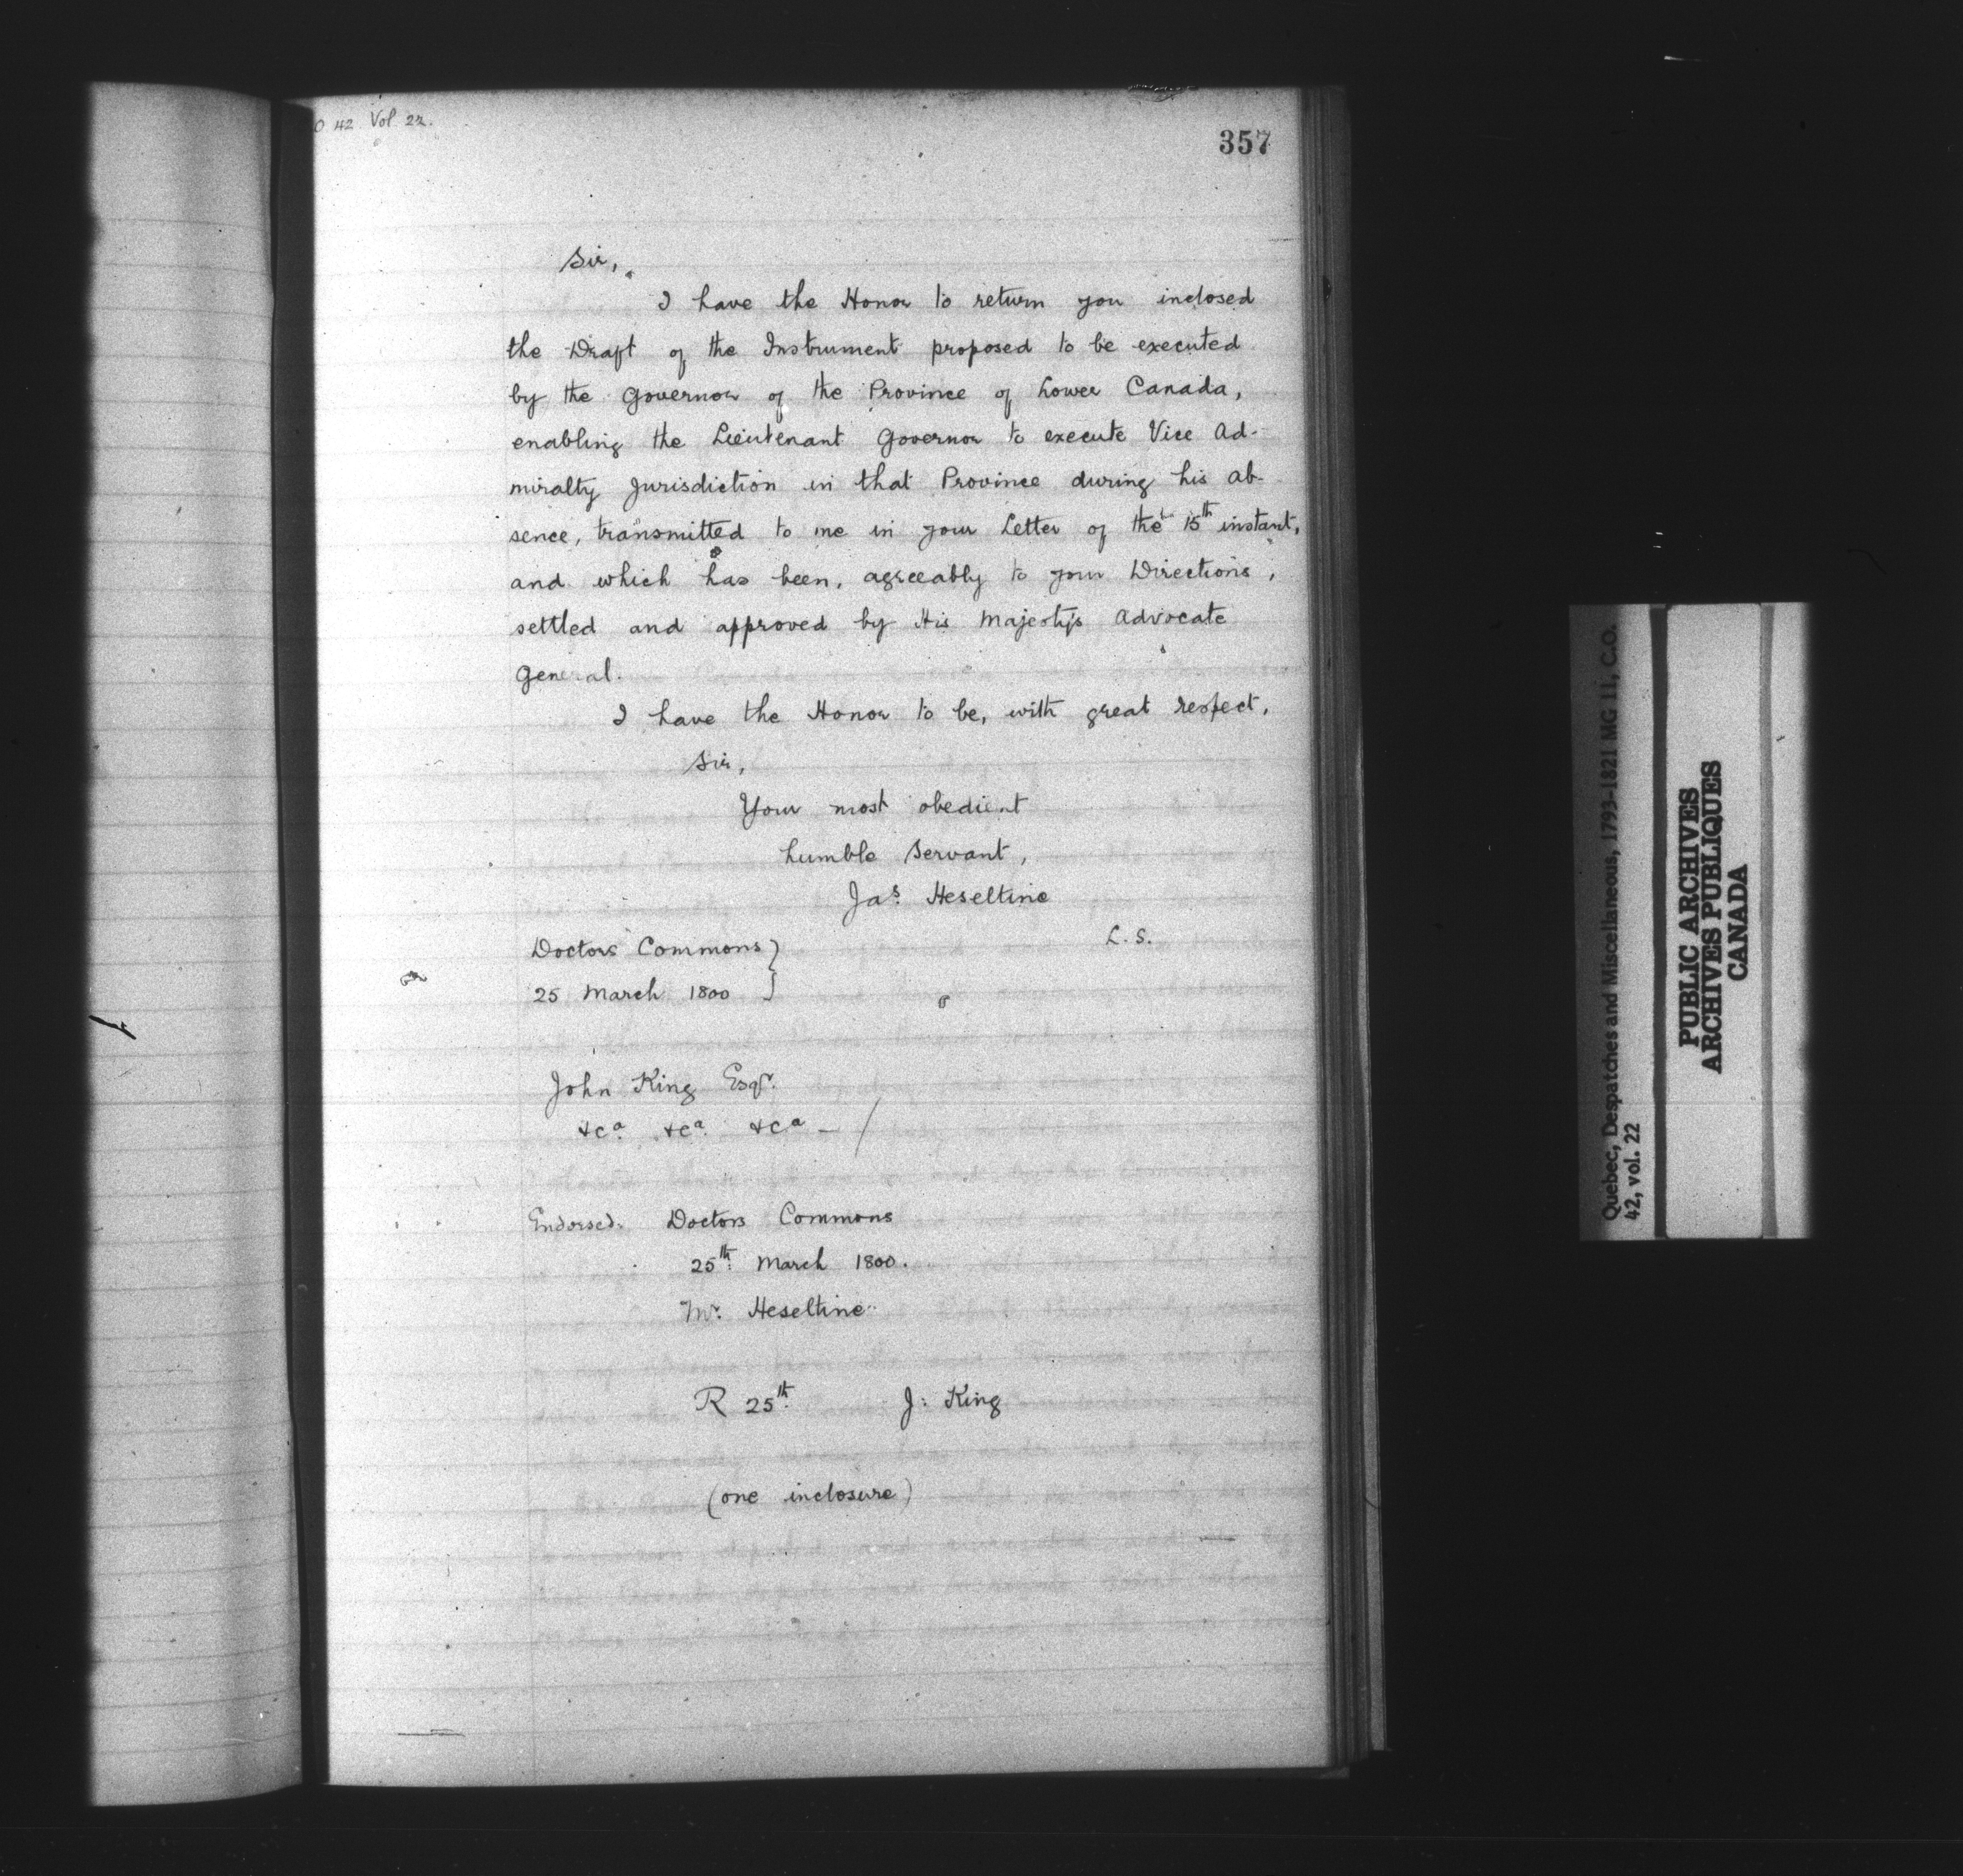 O 42 Vol. 22.
357
Sir,
I have the Honor to return you inclosed
the Draft of the Instrument proposed to be executed
by the Governor of the Province of Lower Canada,
enabling the Lieutenant Governor to execute Vice Ad-
miralty Jurisdiction in that Province during his ab-
sence, transmitted to me in your Letter of the 15th instant,
and which has been, agreeably to your Directions,
settled and approved by His Majesty's Advocate
General.
I have the Honor to be, with great respect,
Sir,
Your most obedient
humble Servant,
Jas. Heseltine
L.S.
Doctors Commons }
25 March 1800 }
John King Esqr.
&ca. &ca. &ca — /
Endorsed. Doctors Commons
25th. March 1800.
Mr. Heseltine
R 25th. J: King
(one inclosure)
Quebec, Despatches and Miscellaneous, 1793-1821 MG 11, C.O.
42, vol. 22
PUBLIC ARCHIVES
ARCHIVES PUBLIQUES
CANADA